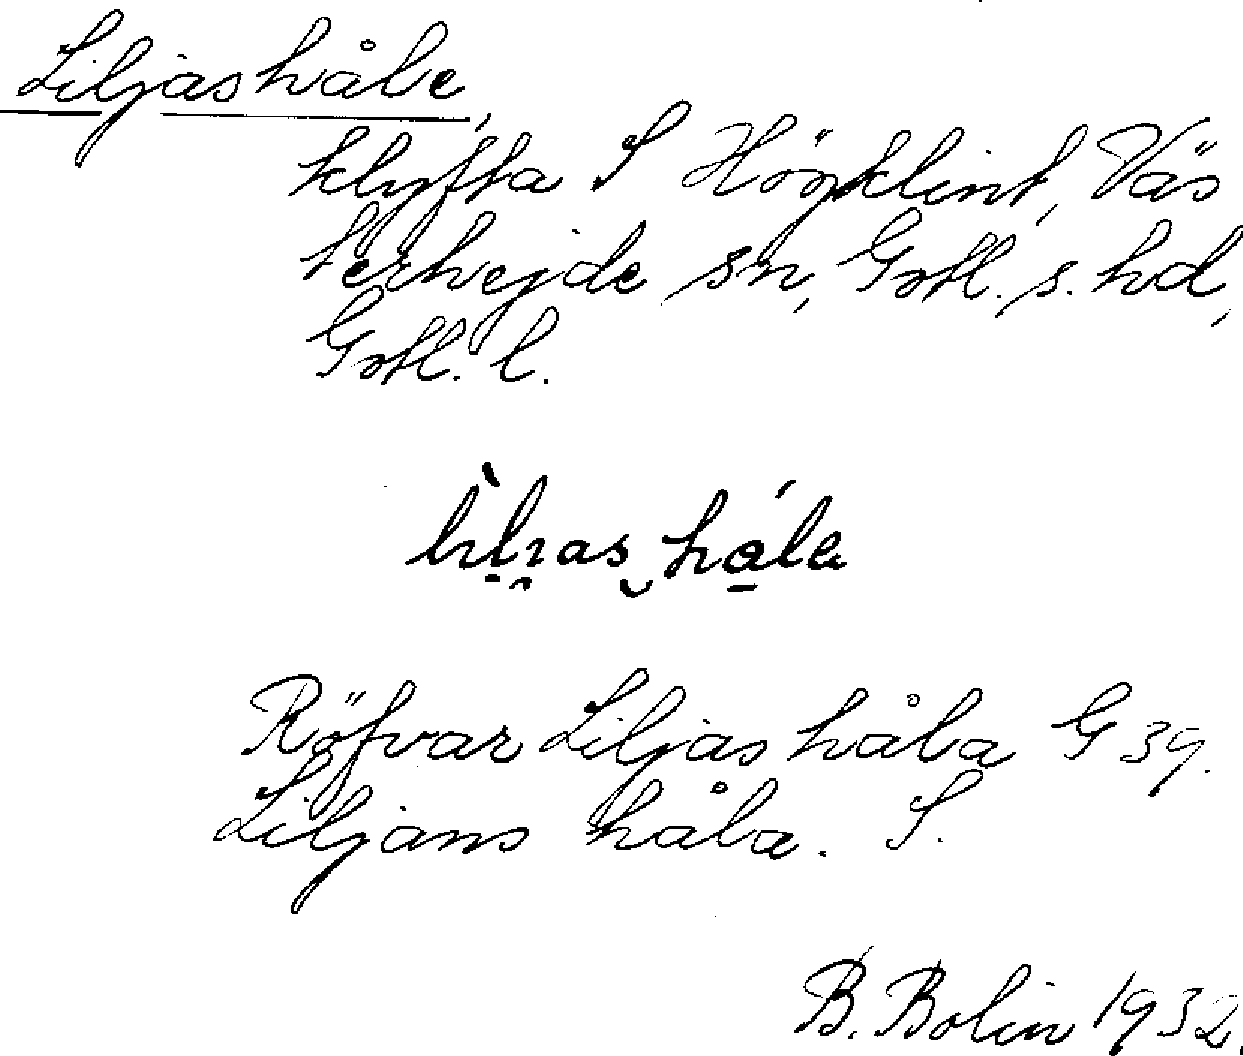 Liljashåle,
klyfta S Högklint, Väs
terhejde sn, Gotl. s. hd,
Gotl. l.
Röfvar Liljas håla G 39.
Liljans håla. S.
B. Bolin 1932.